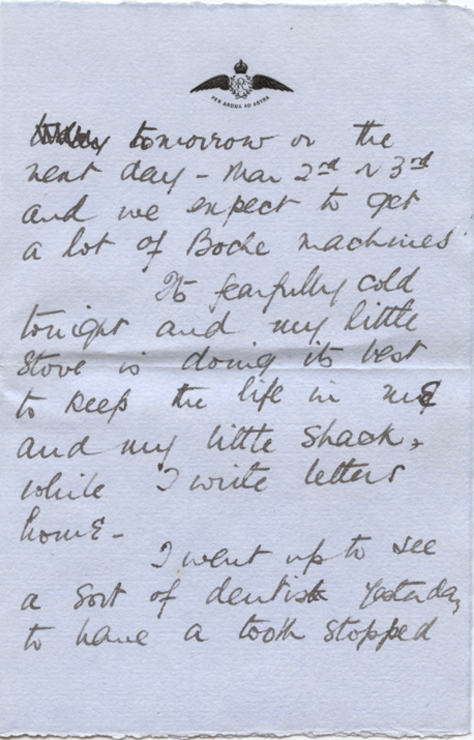 PER ARDUA AD ASTRA
tomorrow or the
next day - Mar 2nd or 3rd
and we expect to get
a lot of Boche machines
Its fearfully cold
tonight and my little
stove is doing its best
to keep the life in me
and my little shack,
while I write letters
home -
I went up to see
a sort of dentist yesterday
to have a tooth stopped